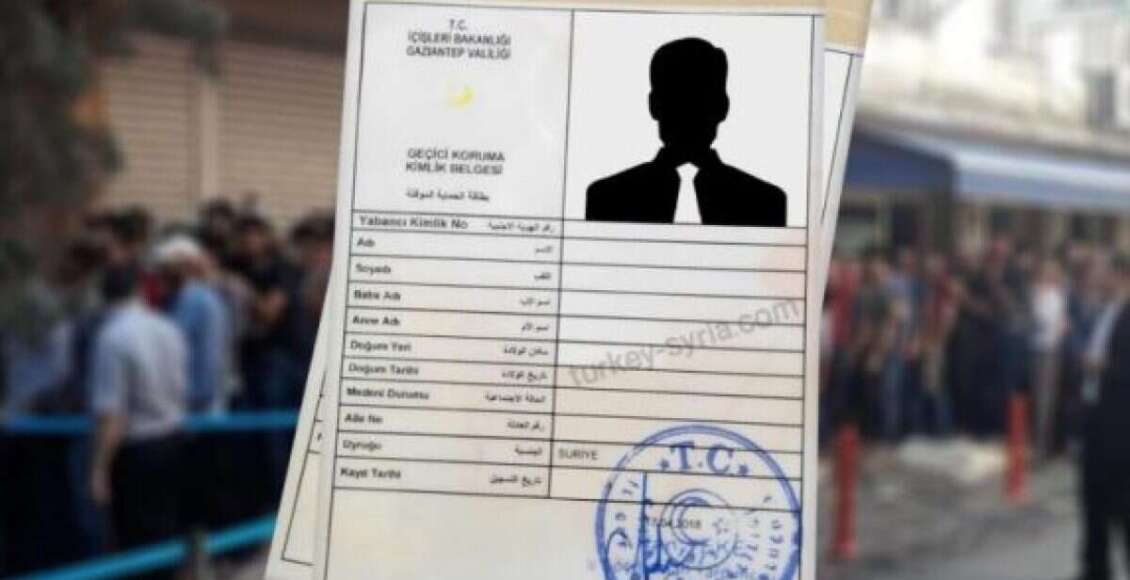 T.C.
İÇİŞLERİ BAKANLIĞI
GAZİANTEP VALİLİĞİ
GEÇİCİ KORUMA
KİMLİK BELGESİ
بطاقة الحماية المؤقتة
Yabancı Kimlik No رقم الهوية الاجنبية
Adı الاسم
Soyadı اللقب
Baba Adı اسم الاب
Anne Adı اسم الأم
Doğum Yeri مكان الولادة
Doğum Tarihi تاريخ الولادة
Medeni Durumu الحالة الاجتماعية
Aile No رقم العائلة
Uyruğu الجنسية SURİYE
Kayıt Tarihi تاريخ التسجيل
turkey-syria.com
T.C